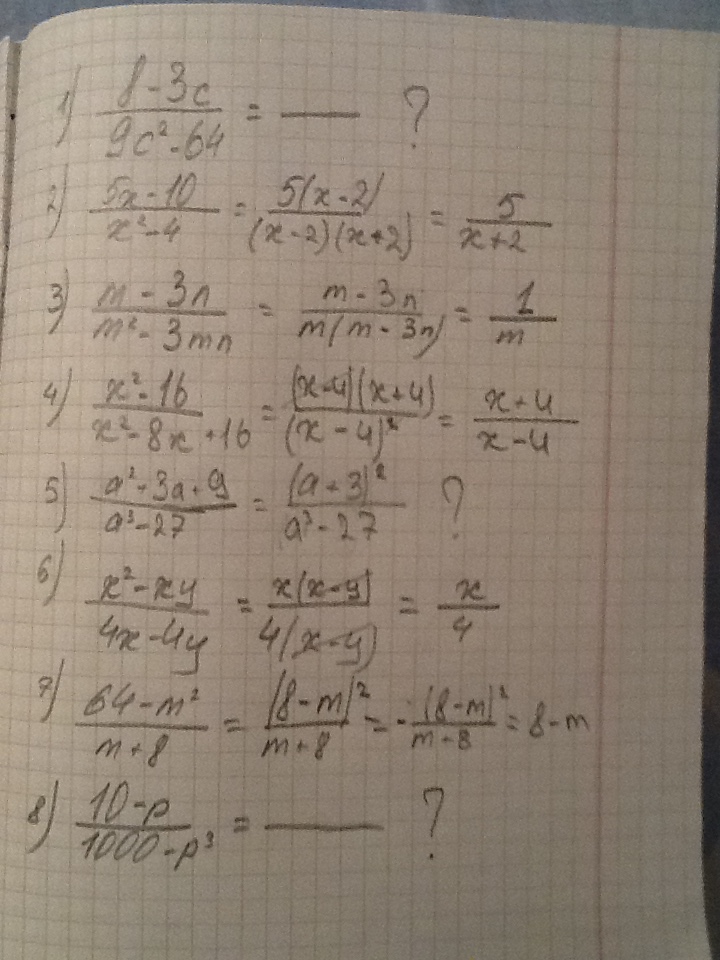 1) (8-3c)/(9c²-64) = —— ?
2) (5x-10)/(x²-4) = 5(x-2)/(x-2)(x+2) = 5/(x+2)
3) (m-3n)/(m²-3mn) = (m-3n)/m(m-3n) = 1/m
4) (x²-16)/(x²-8x+16) = (x-4)(x+4)/(x-4)² = (x+4)/(x-4)
5) (a²+3a+9)/(a³-27) = (a+3)²/(a³-27) ?
6) (x²-xy)/(4x-4y) = x(x-y)/4(x-y) = x/4
7) (64-m²)/(m+8) = (8-m)²/(m+8) = -(8-m)²/(m-8) = 8-m
8) (10-p)/(1000-p³) = —— ?